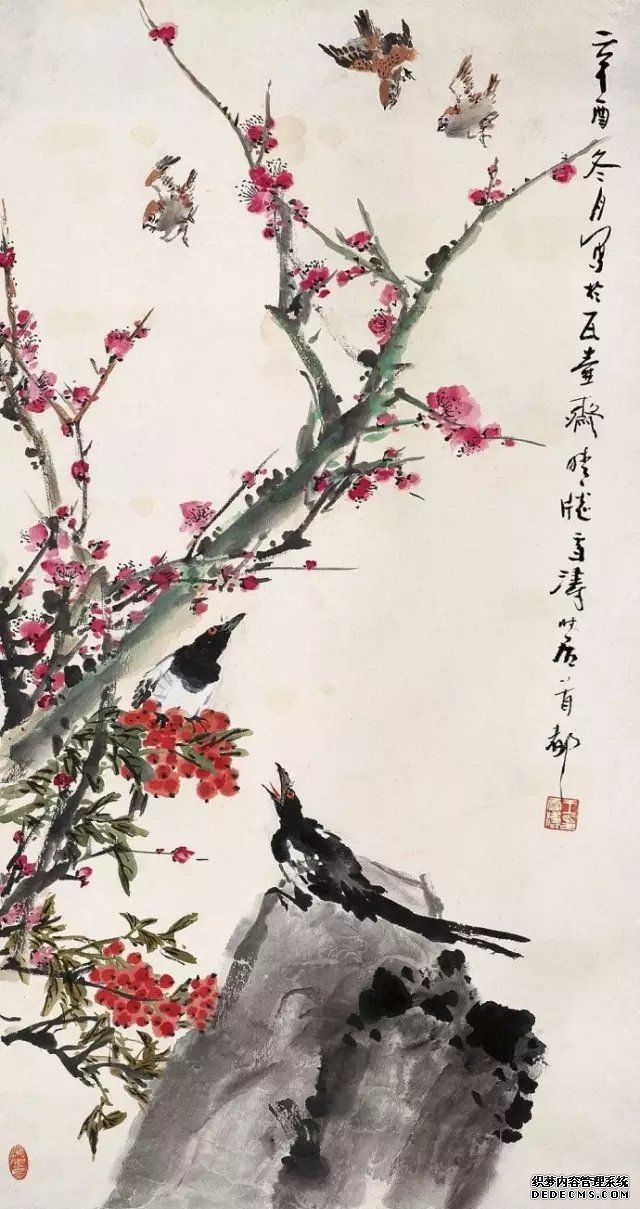 辛酉冬月写於瓦壶齋晴牖雪涛时居首都
织梦内容管理系统
DEDECMS.COM